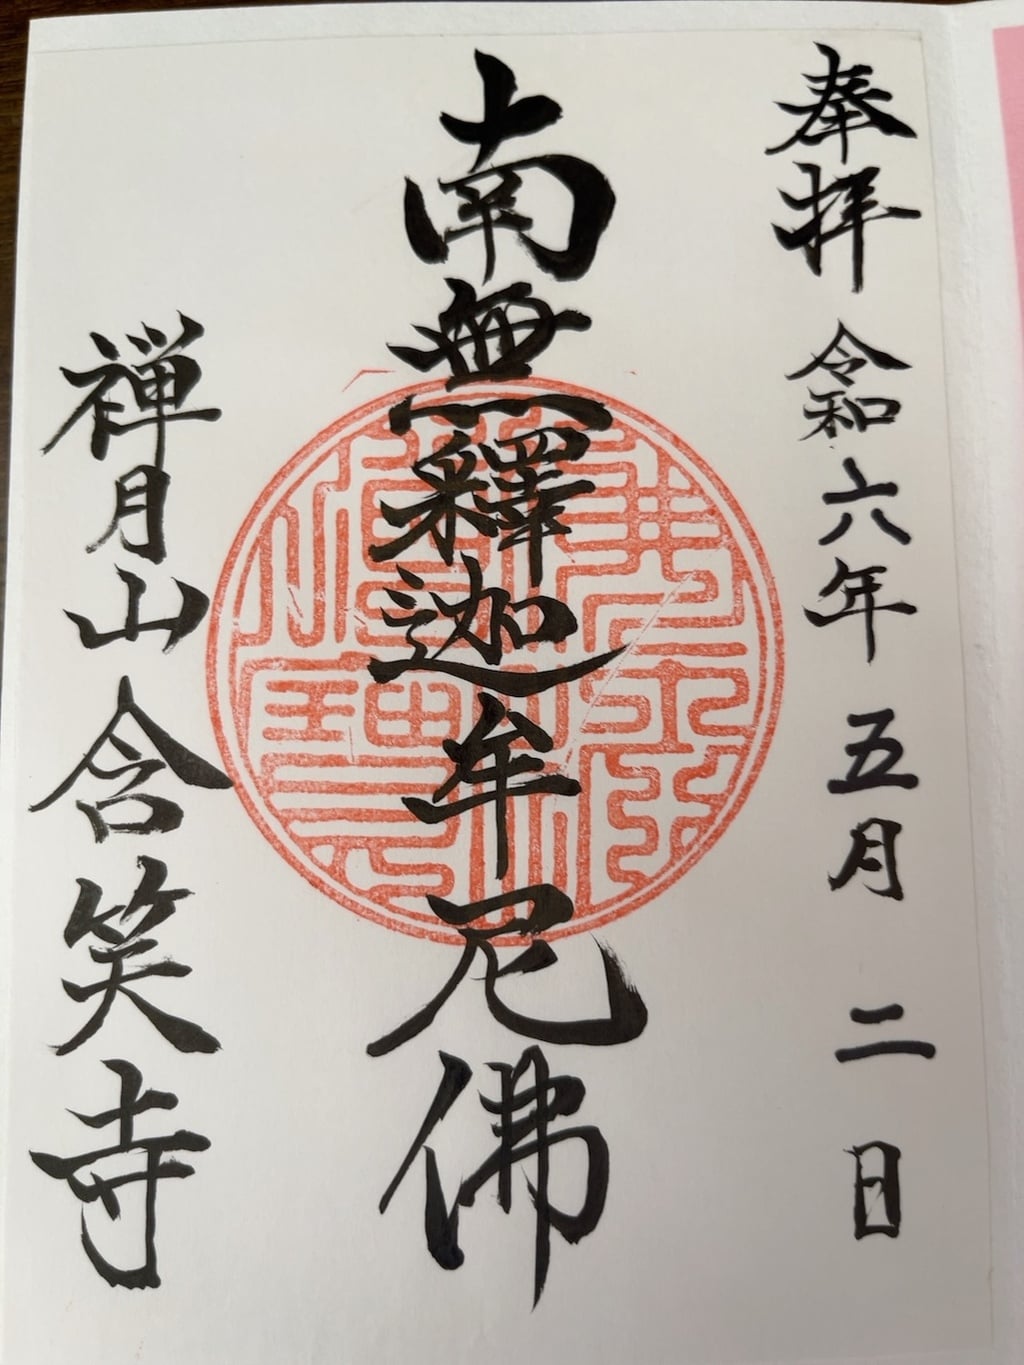 奉拝 令和六年 五月 二日
南無釋迦牟尼佛
禅月山 含笑寺